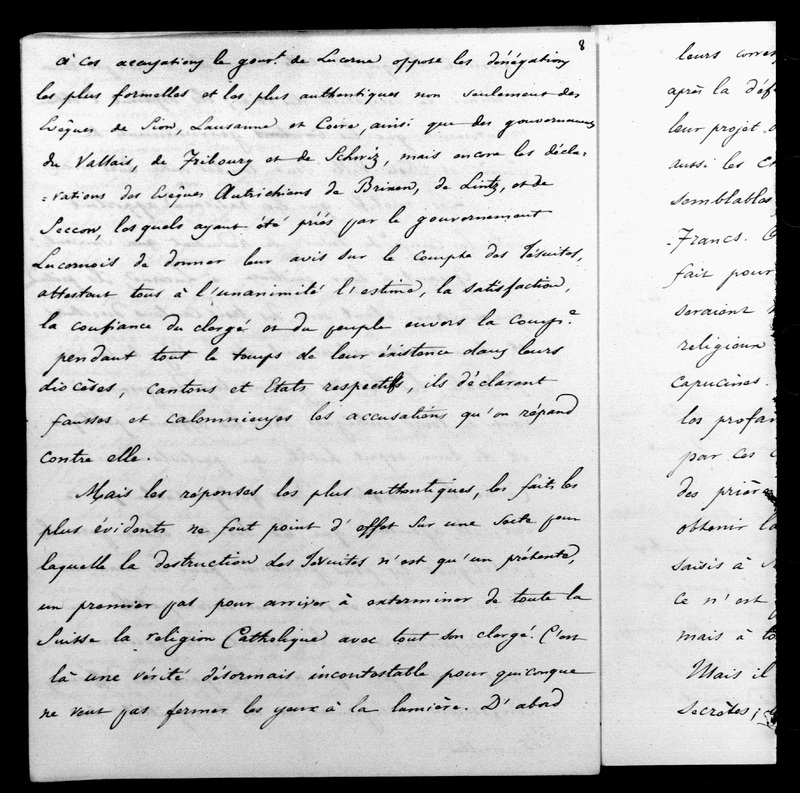 8
à ces accusations le gouvt. de Lucerne oppose les dénégations
les plus formelles et les plus authentiques non seulement des
Evêques de Sion, Lausanne et Coire, ainsi que des gouvernements
du Vallais, de Fribourg et de Schwiz, mais encore les décla-
-rations des Evêques Autrichiens de Brixen, de Lintz, et de
Seccou, lesquels ayant été priés par le gouvernement
Lucernois de donner leur avis sur le compte des Jésuites,
attestant tous à l'unanimité l'estime, la satisfaction,
la confiance du clergé et du peuple envers la Compe.
pendant tout le temps de leur éxistence dans leurs
diocèses, cantons et Etats respectifs, ils déclarent
fausses et calomnieuses les accusations qu'on répand
contre elle.
Mais les réponses les plus authentiques, les faits les
plus évidents ne font point d'effet sur une secte pour
laquelle la destruction des Jésuites n'est qu'un prétexte,
un premier pas pour arriver à exterminer de toute la
Suisse la religion Catholique avec tout son clergé. C'est
là une vérité désormais incontestable pour quiconque
ne veut pas fermer les yeux à la lumière. D'abord
leurs corres
après la déf
leur projet
aussi les
semblables
-Francs.
fait pour
seraient
religieux
capucines.
les profan
par ces
des prièr
obtenir la
saisis à
ce n'est
mais à to
Mais il
secrètes;